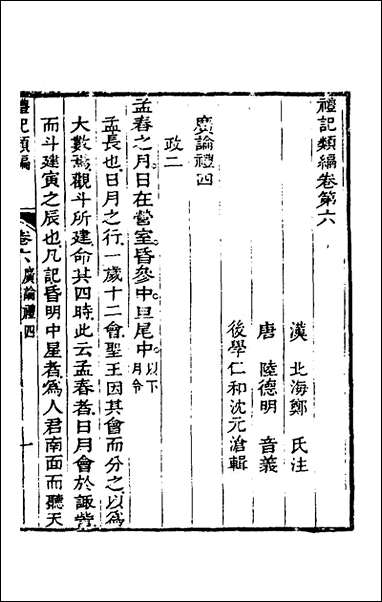 禮記類編卷第六
漢　北海鄭　氏注
唐　陸德明　音義
後學仁和沈元滄輯
廣論禮四
政二
孟春之月日在營室昏參中旦尾中以下月令
孟長也日月之行一歲十二會聖王因其會而分之以爲
大數焉觀斗所建命其四時此云孟春者日月會於諏訾
而斗建寅之辰也凡記昏明中星者爲人君南面而聽天
禮記類編　卷六　廣論禮四　一